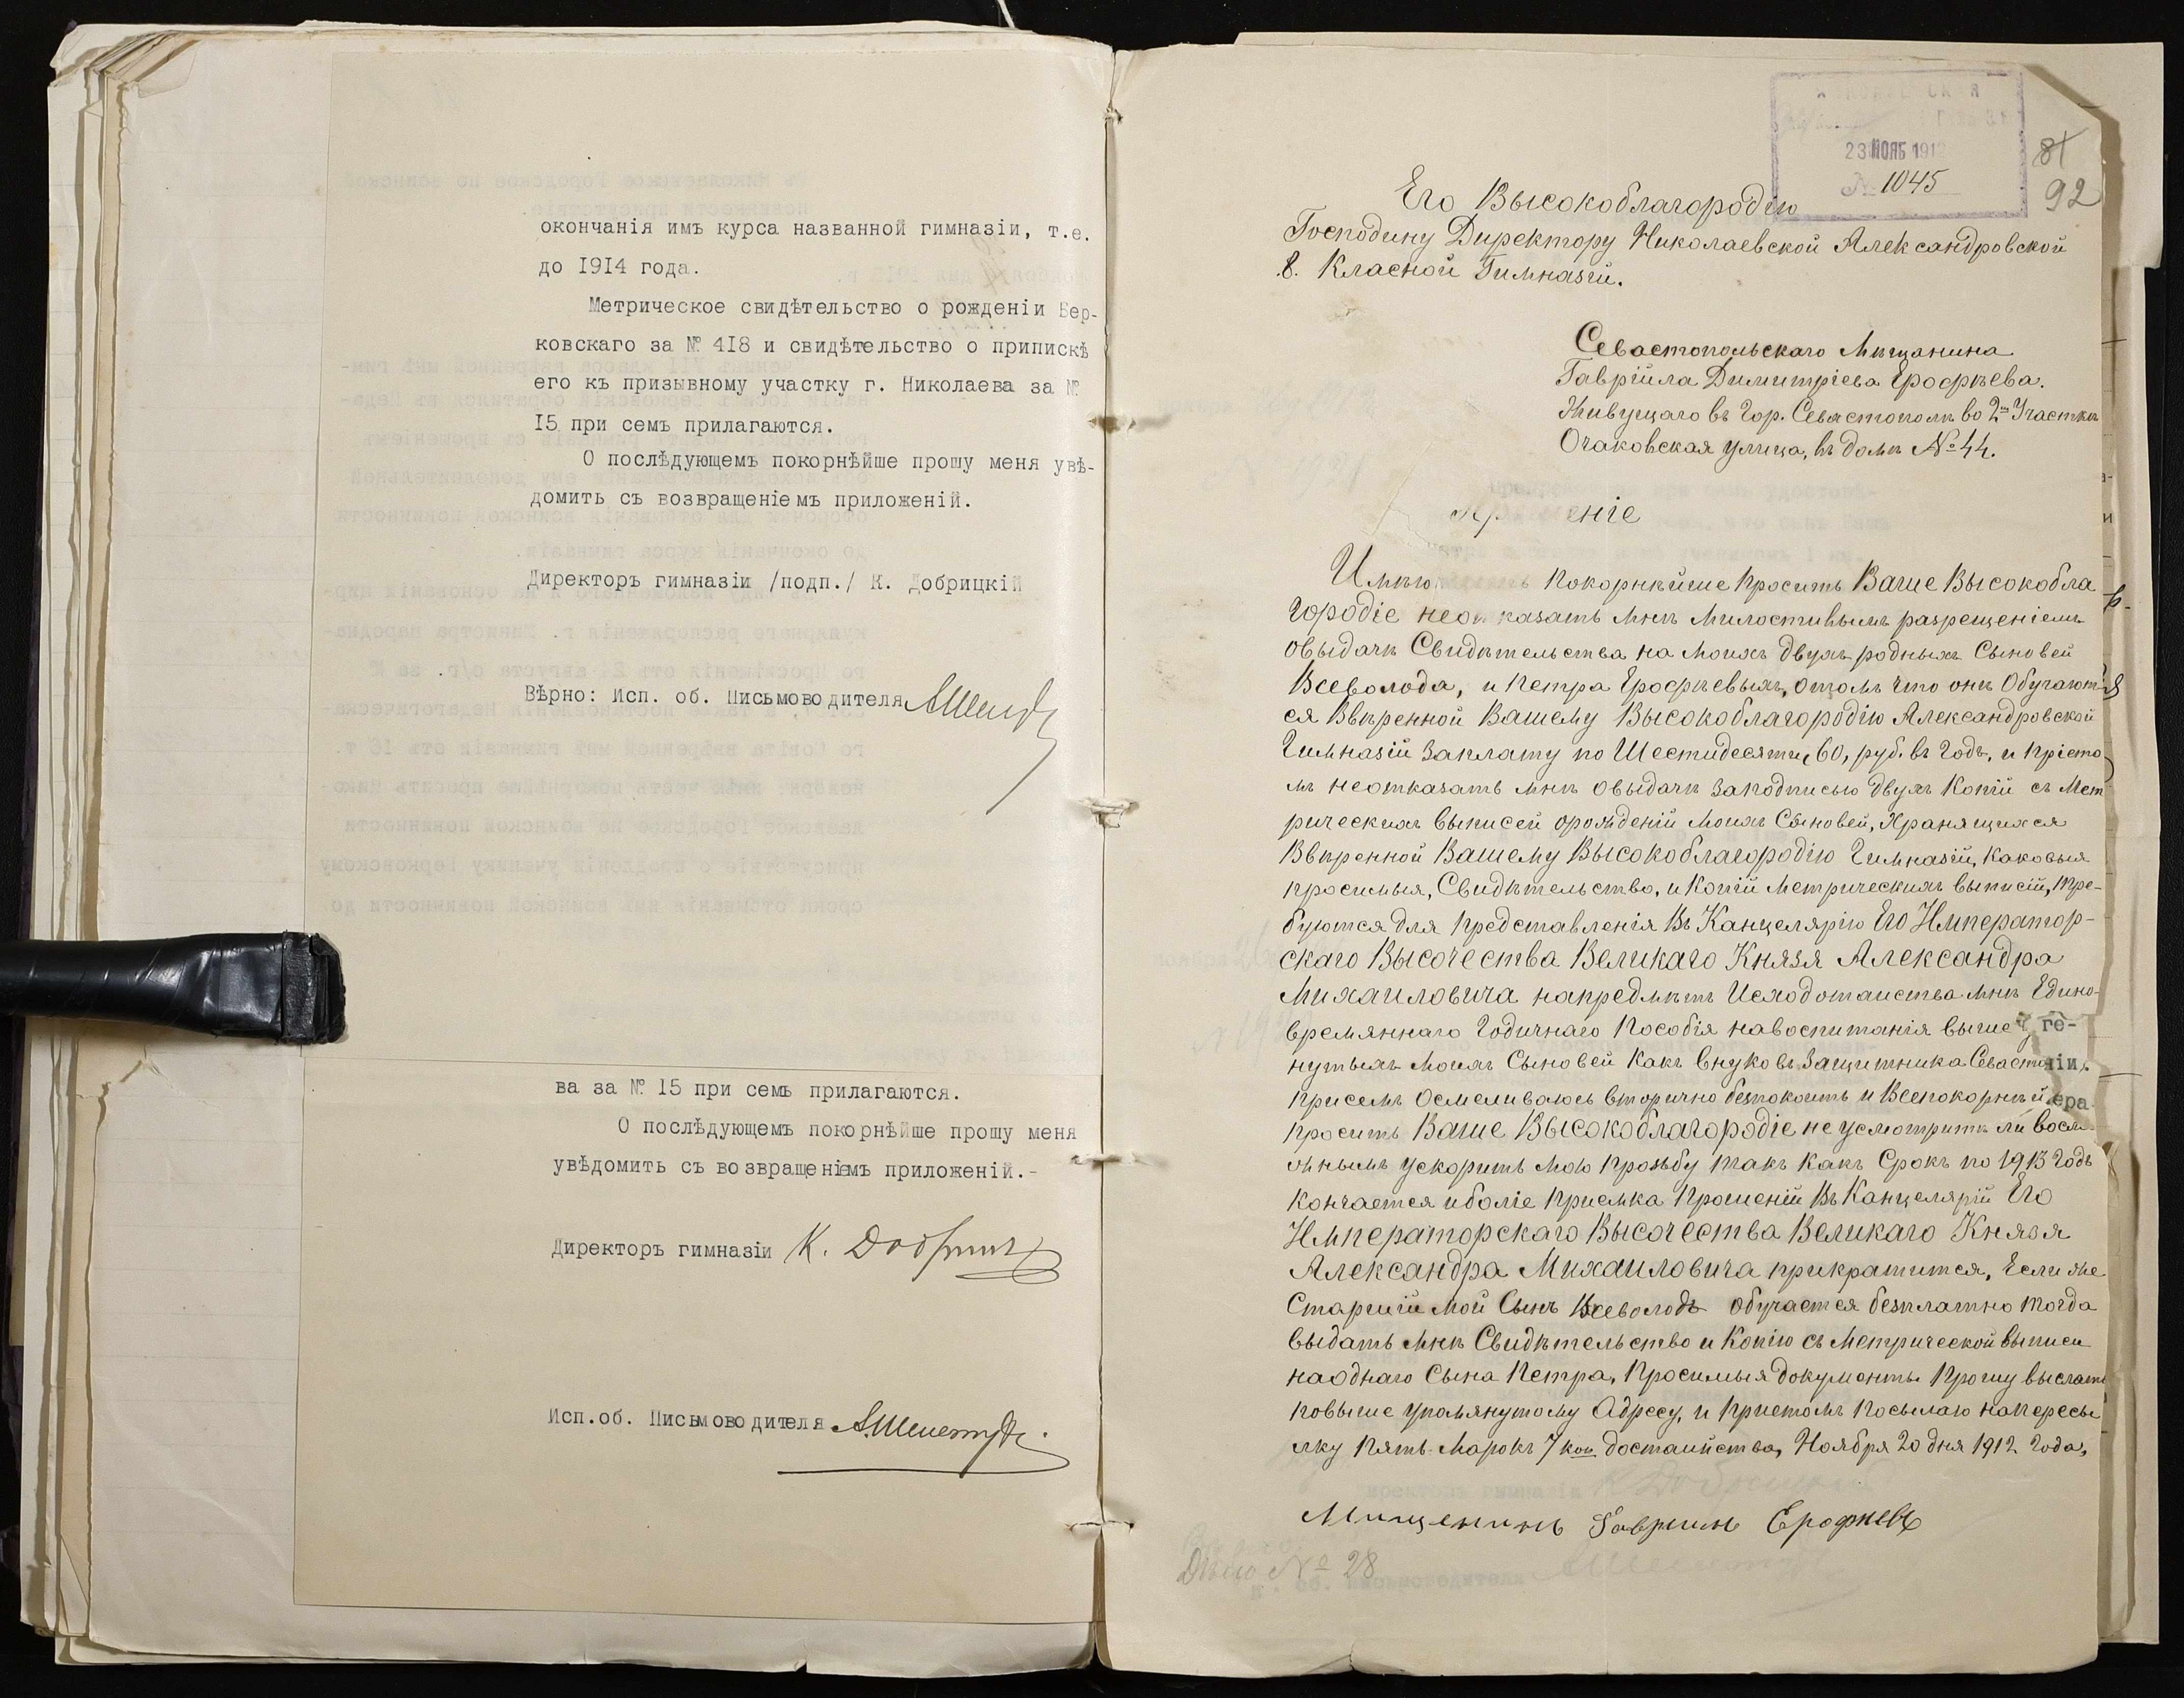 окончанія имъ курса названной гимназіи, т.е.
до 1914 года.
Метрическое свидѣтельство о рожденіи Бер-
ковскаго за № 418 и свидѣтельство о припискѣ
его къ призывному участку г. Николаева за №
15 при семъ прилагаются.
О послѣдующемъ покорнѣйше прошу меня увѣ-
домить съ возвращеніемъ приложеній.
Директоръ гимназіи /подп./ К. Добрицкій
Вѣрно: Исп. об. Письмоводителя
ва за № 15 при семъ прилагаются.
О послѣдующемъ покорнѣйше прошу меня
увѣдомить съ возвращеніемъ приложеній.-
Директоръ гимназіи К.
Исп.об. Письмоводителя
23 НОЯБ 191
№ 1045
81
92
Его Высокоблагородію
Господину Директору Николаевской Александровской
8. Класной Гимназій.
Севастопольскаго Мѣщанина
Гаврійла Димитріева Ерофѣева.
Живущаго въ Гор. Севастополѣ во 2м Участкѣ
Очаковская улица, въ домѣ № 44.
еніе
Имѣю покорнѣйше Просить Ваше Высокобла
городіе неотказать мнѣ Милостивымъ разрещеніемъ
овыдачѣ Свидѣтельства на моихъ двухъ родныхъ Сыновей
Всеволода, и Петра Ерофѣевыхъ, отомъ что онѣ Обучают
ся Ввѣренной Вашему Высокоблагородію Александровской
Гимназіи Заплату по Шестидесяти, 60, руб. въ Годъ, и Прієто
мъ неотказать мнѣ овыдачѣ заподписью двухъ Копій съ Мет
рическихъ выписей орожденій моихъ Сыновей, Хранящихся
Ввѣренной Вашему Высокоблагородію Гимназій, Каковыя
просимыя, Свидѣтельство, и Копій Метрическихъ выписій, тре-
буются для представленія Въ Канцелярію Его Император-
скаго Высочества Великаго Князя Александра
Михаиловича напредмѣтъ Исходотаиства мнѣ Едино-
времяннаго Годичнаго Пособія навоспитанія выше
нутыхъ Моихъ Сыновей Какъ внуковъ Защитника Севасто
Присемъ Осмеливаюсь вторично безпокоить и Всепокорнѣй
просить Ваше Высокоблагородіе не усмотрите ли возмо
жнымъ ускорить мою прозьбу такъ Какъ Срокъ по 1913 Годъ
Кончается и боліе Приемка Прошеній Въ Канцелярій Его
Императорскаго Высочества Великаго Князя
Александра Михаиловича прикратится, Если же
Старшій мой Сынъ Всеволодъ обучается безплатно тогда
выдать мнѣ Свидѣтельство и Копію съ Метрической выписи
наоднаго Сына Петра, Просимыя документы Прошу выслать
повыше упомянутому Адресу, и приетомъ посылаю напересы
лку Пять Марокъ 7 коп достаийства, Ноября 20 дня 1912 Года,
Мищенинъ Гавриилъ Ерофиевъ
Дѣло № 28